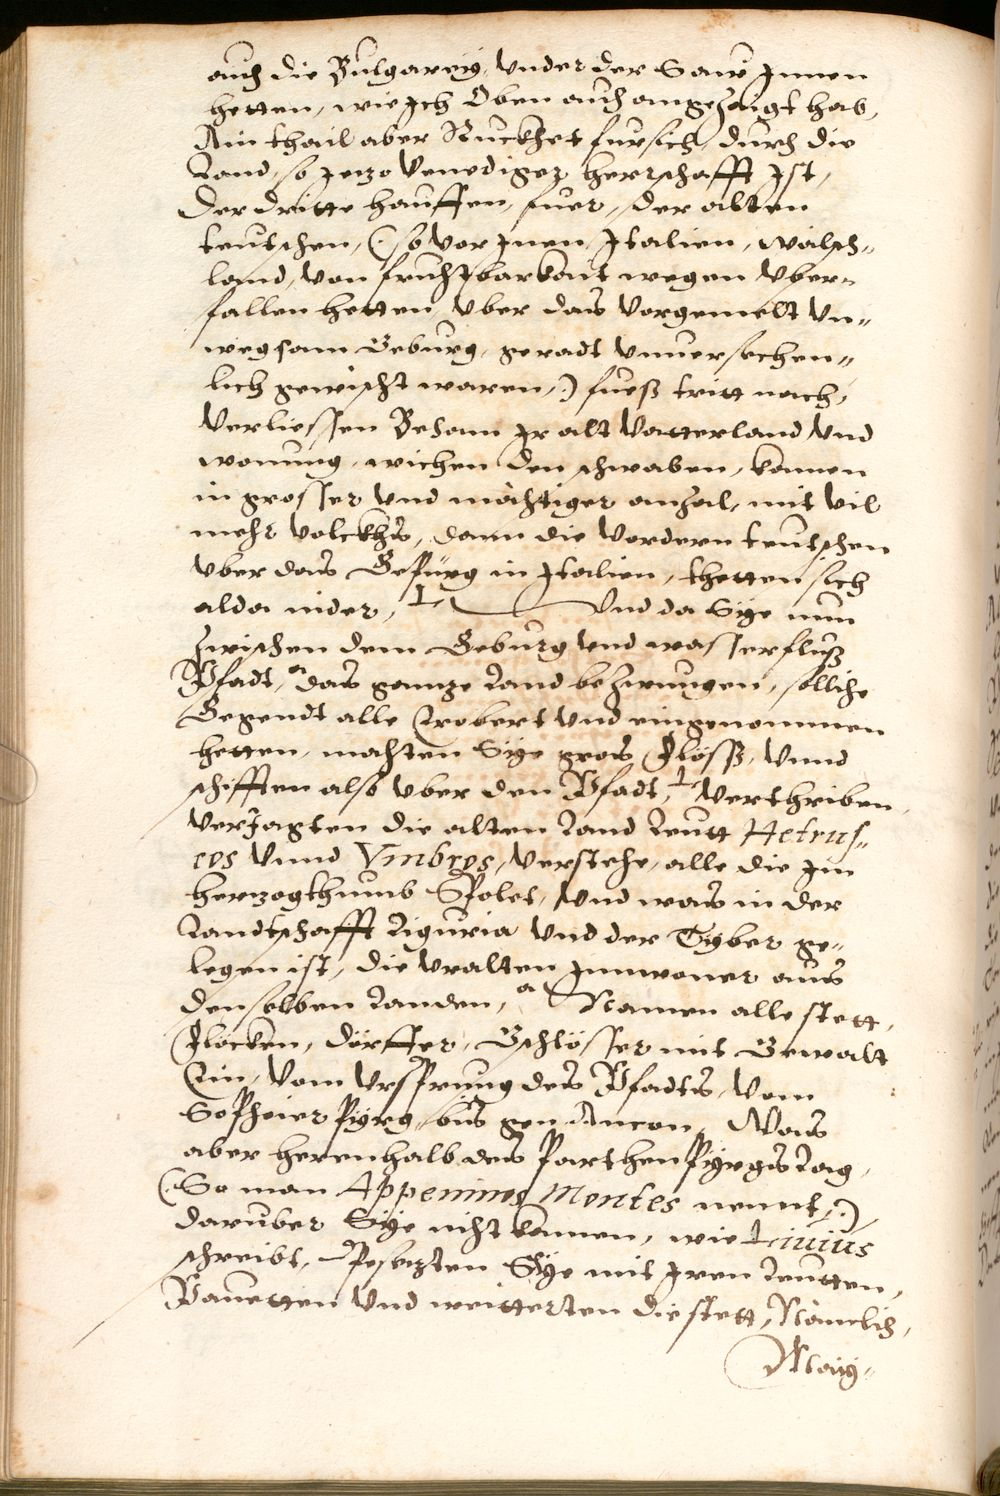 auch die Bulgareyg, Vnder der Saw Jnnen
hetten, wie Jch Oben auch angezaigt hab,
Ain thail aber Ruckhet fursich, durch die
Land, so Jetzo Venediger herrschafft Jst,
Der dritte hauffen, fuer, der alten
teutschen, (: so vor Jnen Jtalien, wälsch„
land, von fruchtbarkait wegen Vber„
fallen hetten, Vber das Vorgemelt Vn„
wegsam Geburg, geradt vnuersechen„
lich gewischt waren,:) fueß tritt nach,
Verliessen Beham Jr alt Vatterland Vnd
wonung, wichen den schwaben, kamen
in grosser Vnd mächtiger anzal, mit Vil
mehr Volckhs, dann die Vordern teutschen
Vber das Gepürg in Jtalien, thetten sich
alda nider, Vnd da Sÿe nun
zwischen dem Geburg Vnd wasserfluß
Pfadt, das gantze Land bezwungen, solliche
Gegendt alle Erobert Vnd eingenommen
hetten, machten Sÿe gros Flöss, Vnnd
schifften also Vber den Pfadt, Verthriben,
VerJagten die alten Land Leutt Hetrus„
cos Vnnd Vmbros, Verstehe, alle die Jm
hertzogthumb Spolet, Vnd was in der
Landtschafft Liguria Vnd der Tyber ge„
legen ist, die Vralten Jnnwoner aus
denselben Landen, Namen alle stett,
Flöcken, dörffer, Gschlösser mit Gewalt
Ein, Vom Vrsprung des Pfadts, Vom
Sophoier Pÿrg, bis gen Ancon, Was
aber herenhalb des Parthen Pÿrgs Lag,
(: So man Appeninos Montes nennt,:)
daruber Sÿe nicht kamen, wie Liuius
schreibt, Besetzten Sÿe mit Jren Leutten,
Bauetten Vnd weitterten die stett, Nämlich,
May„